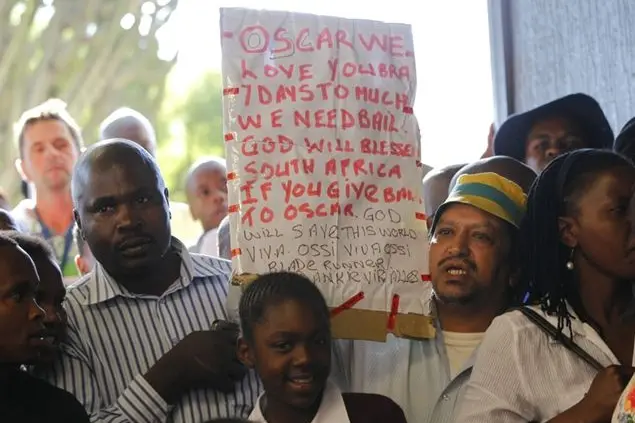 OSCAR WE.
LOVE YOU BRA
7 DAYS TO MUCH
WE NEED BAIL.
GOD WILL BLESSE
SOUTH AFRICA
IF YOU GIVE BAIL
TO OSCAR. GOD
WILL SAVE THIS WORLD
VIVA OSSI VIVA OSSI
BLADE RUNNER